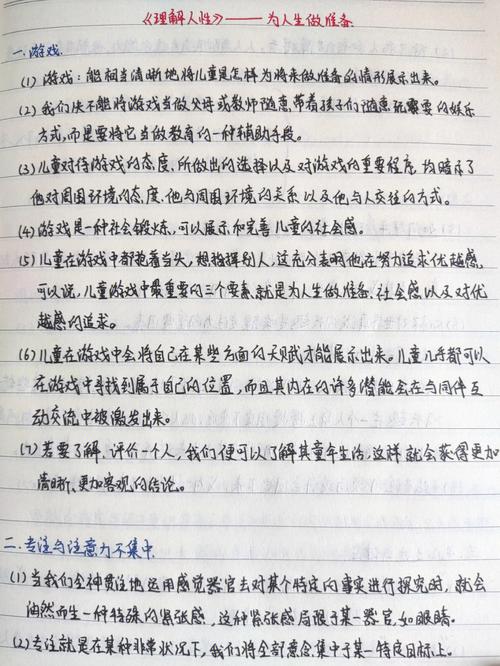 《理解人性》——为人生做准备
一.游戏.
(1) 游戏:能相当清晰地将儿童是怎样为将来做准备的情形展示出来。
(2) 我们决不能将游戏当做父母或教师随意带着孩子们随意玩耍的娱乐
方式,而是要将它当做教育的一种辅助手段。
(3) 儿童对待游戏的态度.所做出的选择以及对游戏的重要程度.均暗示了
他对周围环境的态度.他与周围环境的关系以及他与人交往的方式。
(4) 游戏是一种社会锻炼,可以展示和完善儿童的社会感。
(5) 儿童在游戏中都抱着当头,想指挥别人,这充分表明他在努力追求优越感,
可以说,儿童游戏中最重要的三个要素就是为人生做准备.社会感以及对优
越感的追求。
(6) 儿童在游戏中会将自己在某些方面的天赋才能展示出来。儿童几乎都可以
在游戏中寻找到属于自己的位置,而且其内在的许多潜能会在与同伴互
动交流中被激发出来。
(7) 若要了解.评价一个人,我们便可以了解其童年生活,这样就会获得更加
清晰.更加客观的结论。
二.专注与注意力不集中
(1) 当我们全神贯注地运用感觉器官去对某个特定的事实进行探究时,就会
油然而生一种特殊的紧张感,这种紧张感局限于某一器官,如眼睛.
(2) 专注就是在某种非常状况下,我们将全部意念集中于某一特定目标上。